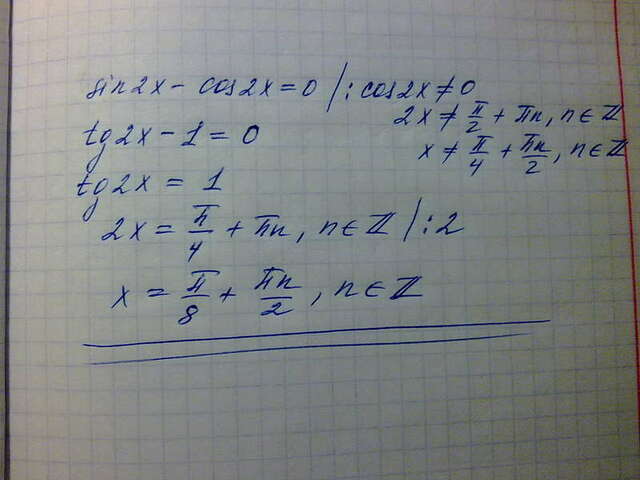 sin2x - cos2x = 0 /: cos2x ≠ 0
2x ≠ π/2 + πn, n ∈ ℤ
tg2x - 1 = 0
x ≠ π/4 + πn/2, n ∈ ℤ
tg2x = 1
2x = π/4 + πn, n ∈ ℤ /:2
x = π/8 + πn/2, n ∈ ℤ